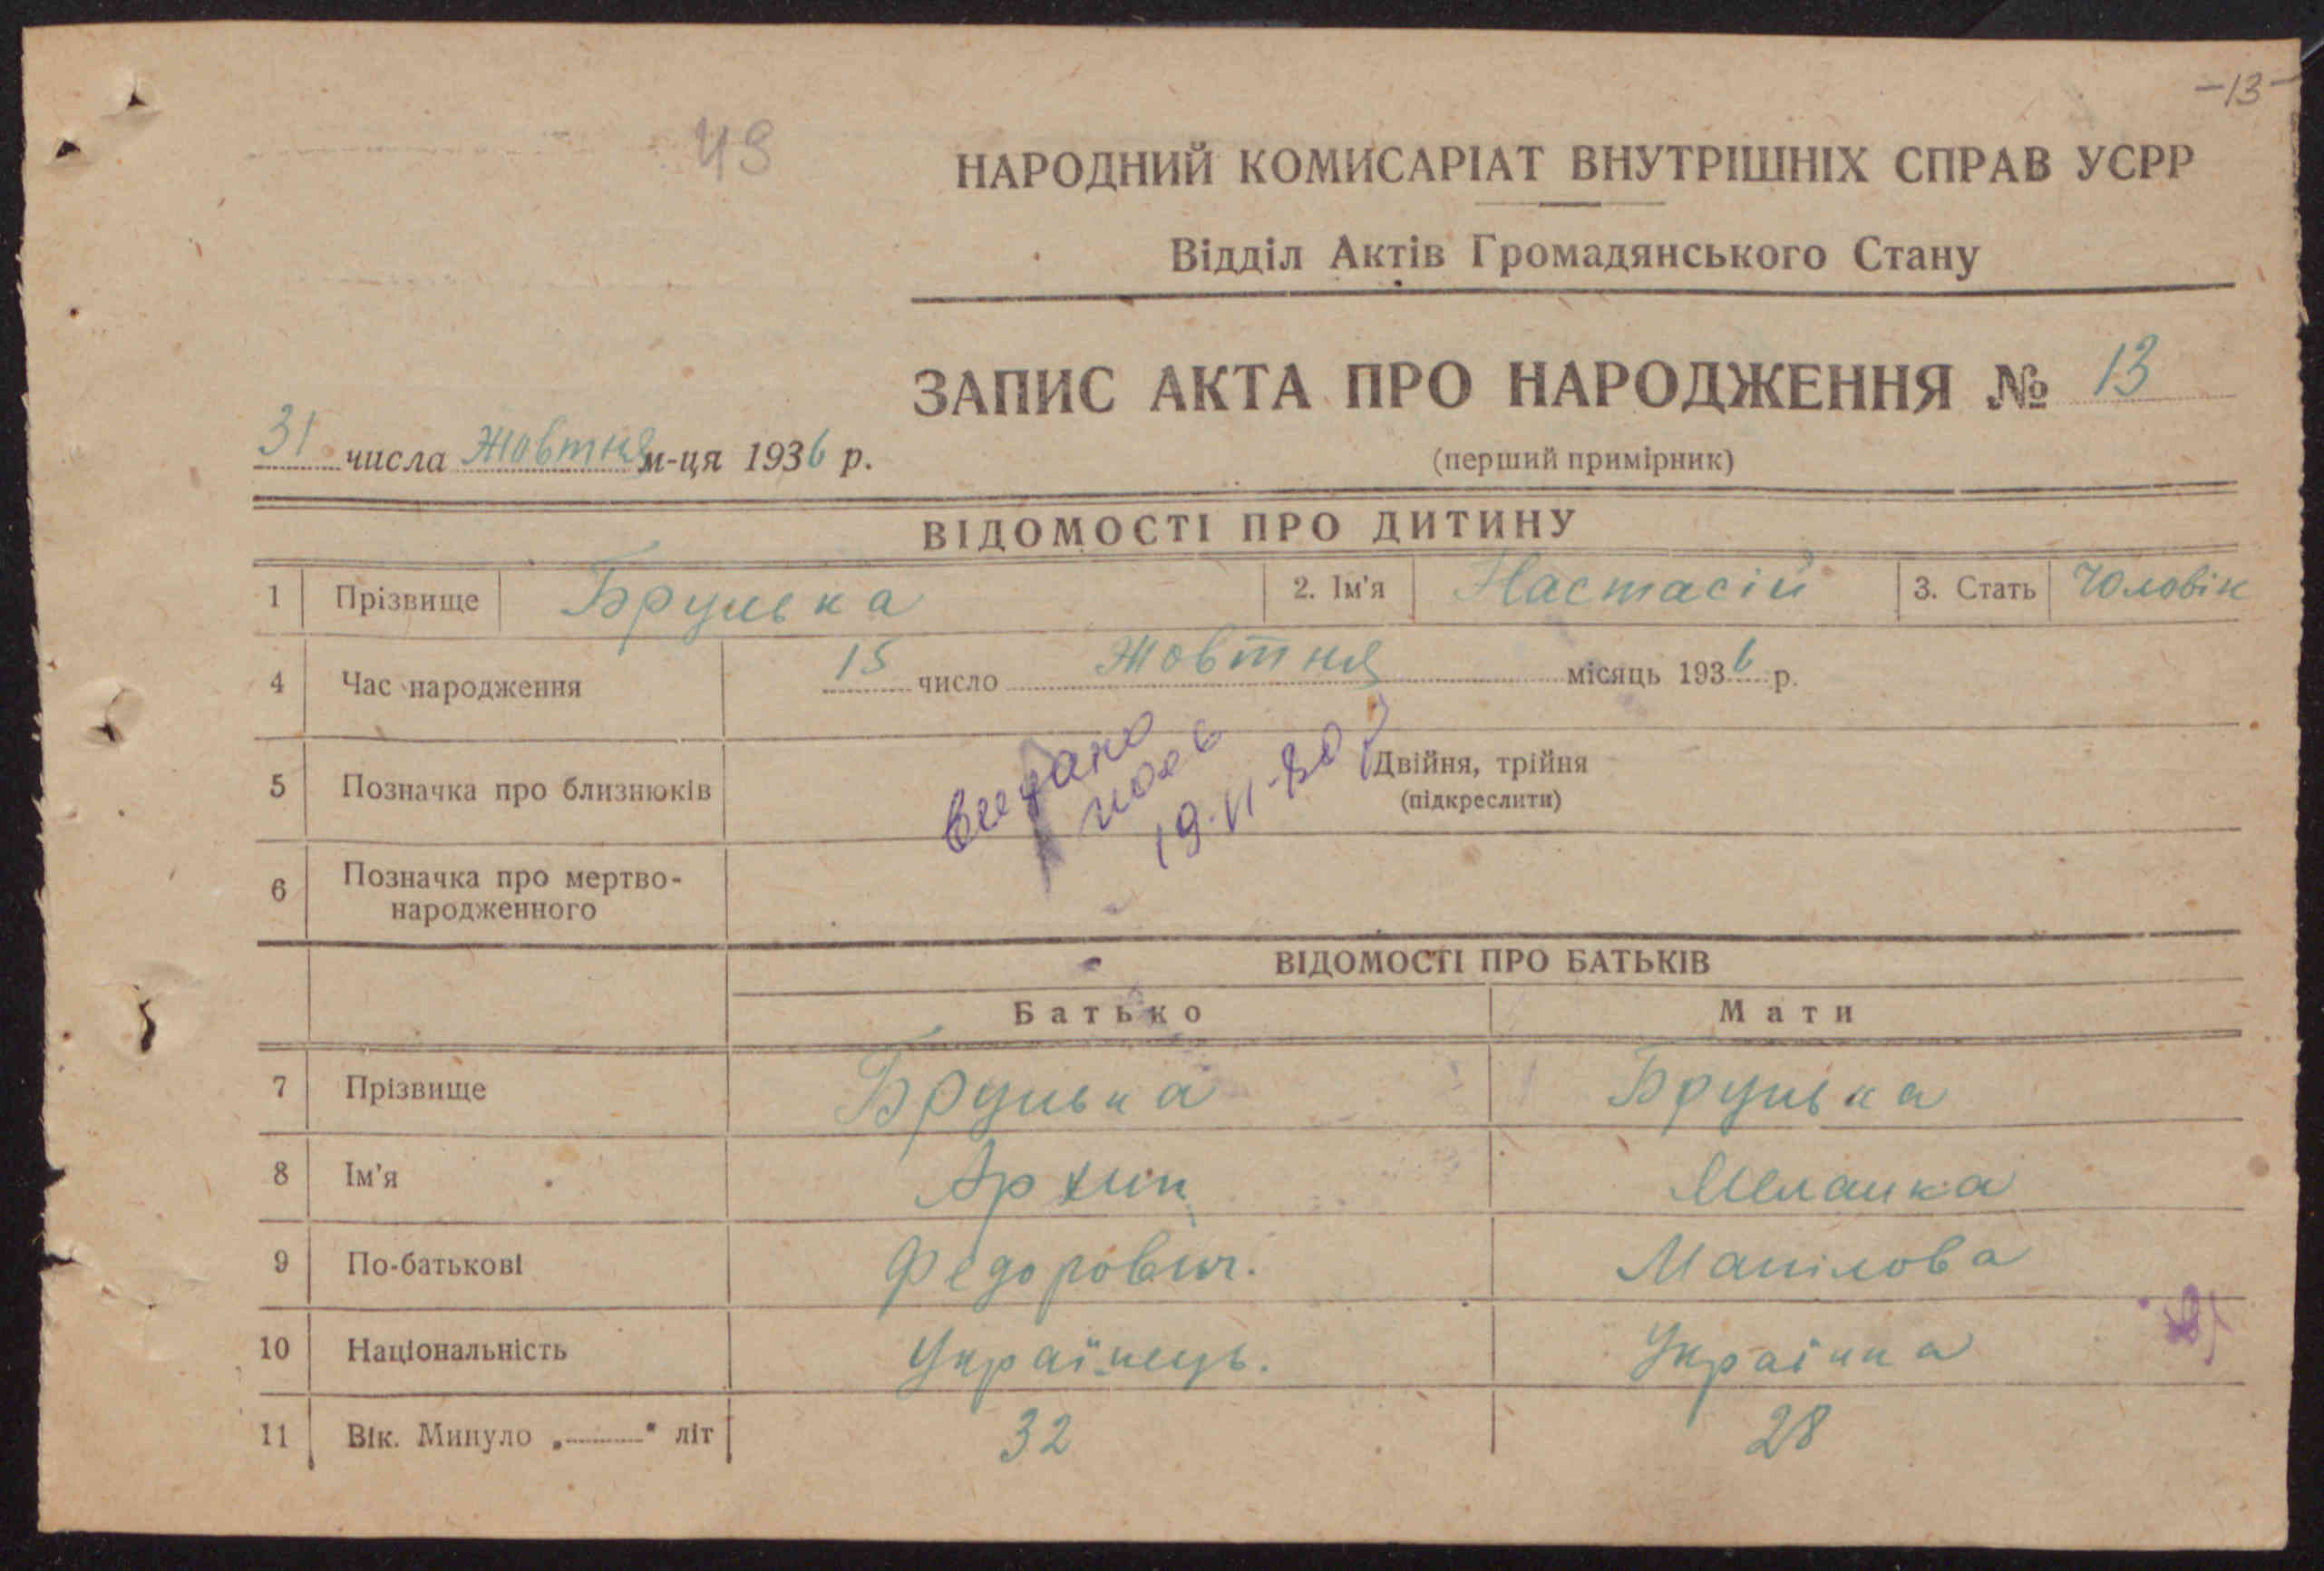 -13-
43
НАРОДНИЙ КОМИСАРІАТ ВНУТРІШНІХ СПРАВ УСРР
Відділ Актів Громадянського Стану
ЗАПИС АКТА ПРО НАРОДЖЕННЯ № 13
31 числа Жовтня м-ця 1936 р.
(перший примірник)
ВІДОМОСТІ ПРО ДИТИНУ
1 Прізвище Брулька 2. Ім'я Настасій 3. Стать Чоловік
4 Час народження 15 число жовтня місяць 1936 р.
5 Позначка про близнюків Двійня, трійня
(підкреслити)
19-VI-80
6 Позначка про мертво-
народженного
ВІДОМОСТІ ПРО БАТЬКІВ
Батько Мати
7 Прізвище Брулька Брулька
8 Ім'я Архип Меланка
9 По-батькові Федорович. Манілова
10 Національність Українець. Українка
11 Вік. Минуло „ “ літ 32 28